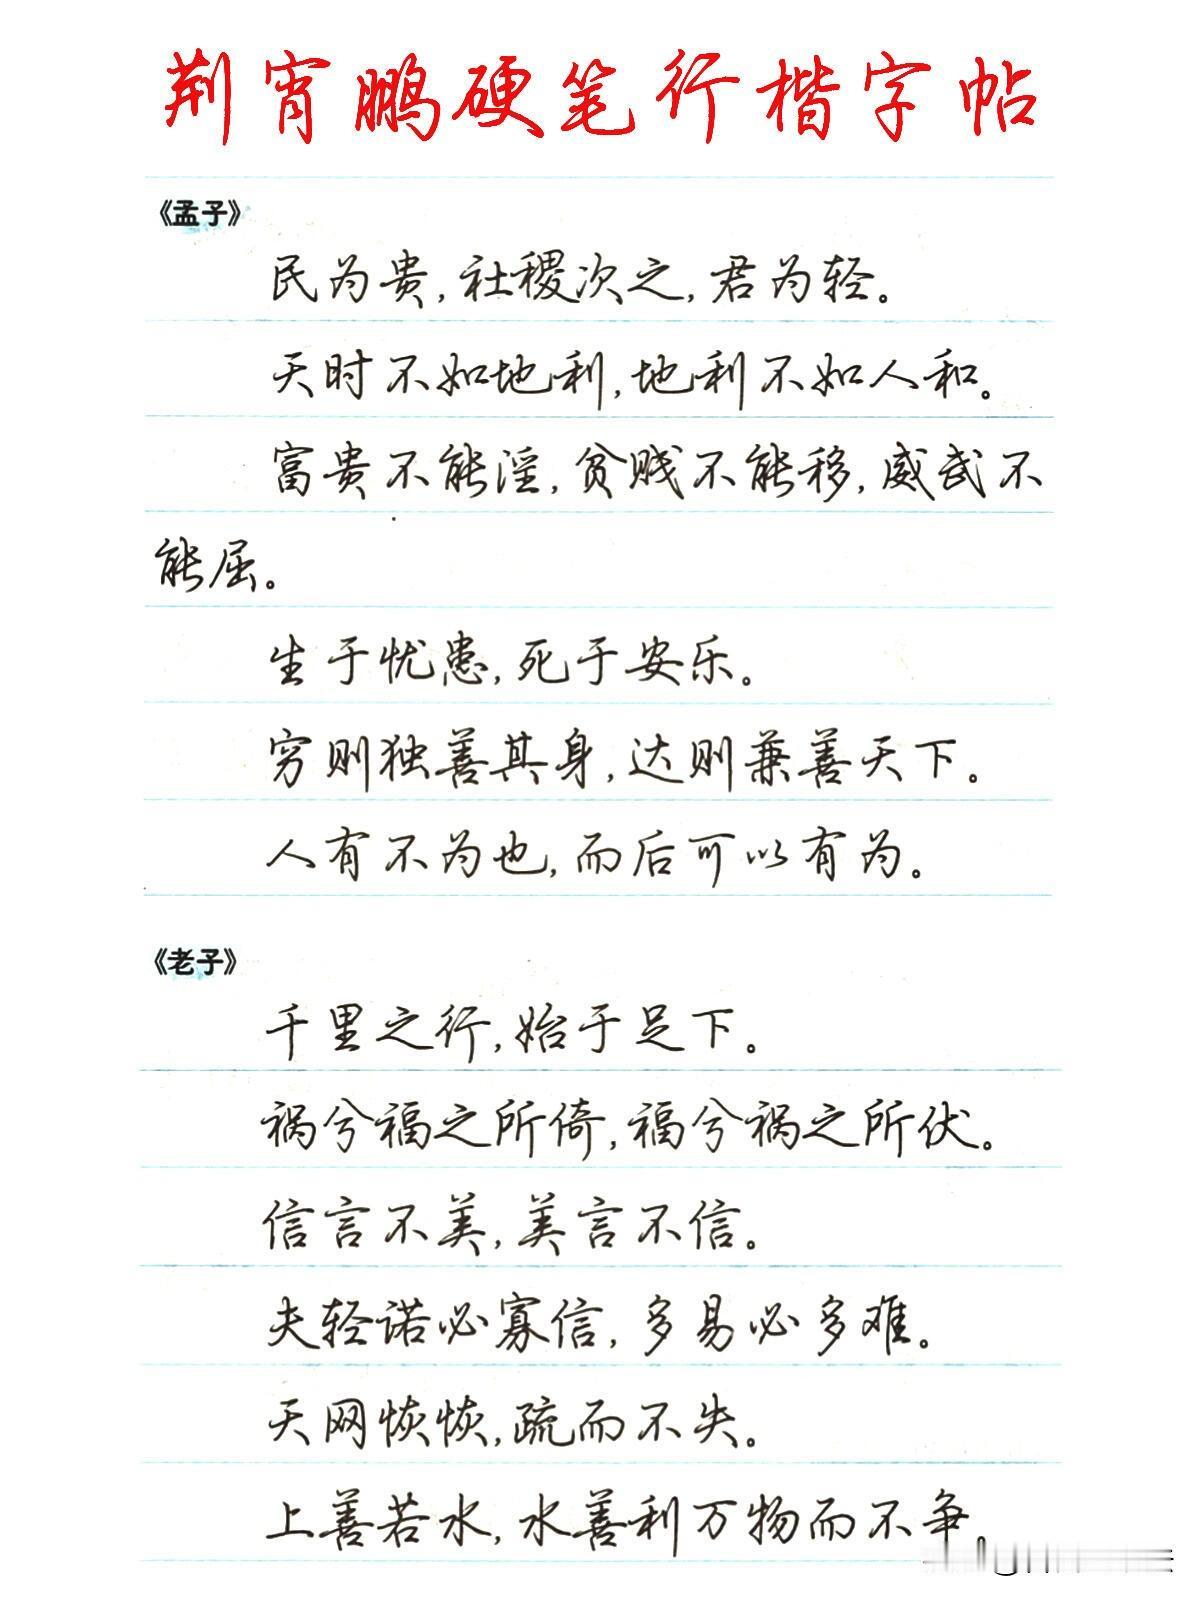 荆宵鹏硬笔行楷字帖
《孟子》
民为贵,社稷次之,君为轻。
天时不如地利,地利不如人和。
富贵不能淫,贫贱不能移,威武不
能屈。
生于忧患,死于安乐。
穷则独善其身,达则兼善天下。
人有不为也,而后可以有为。
《老子》
千里之行,始于足下。
祸兮福之所倚,福兮祸之所伏。
信言不美,美言不信。
夫轻诺必寡信,多易必多难。
天网恢恢,疏而不失。
上善若水,水善利万物而不争。